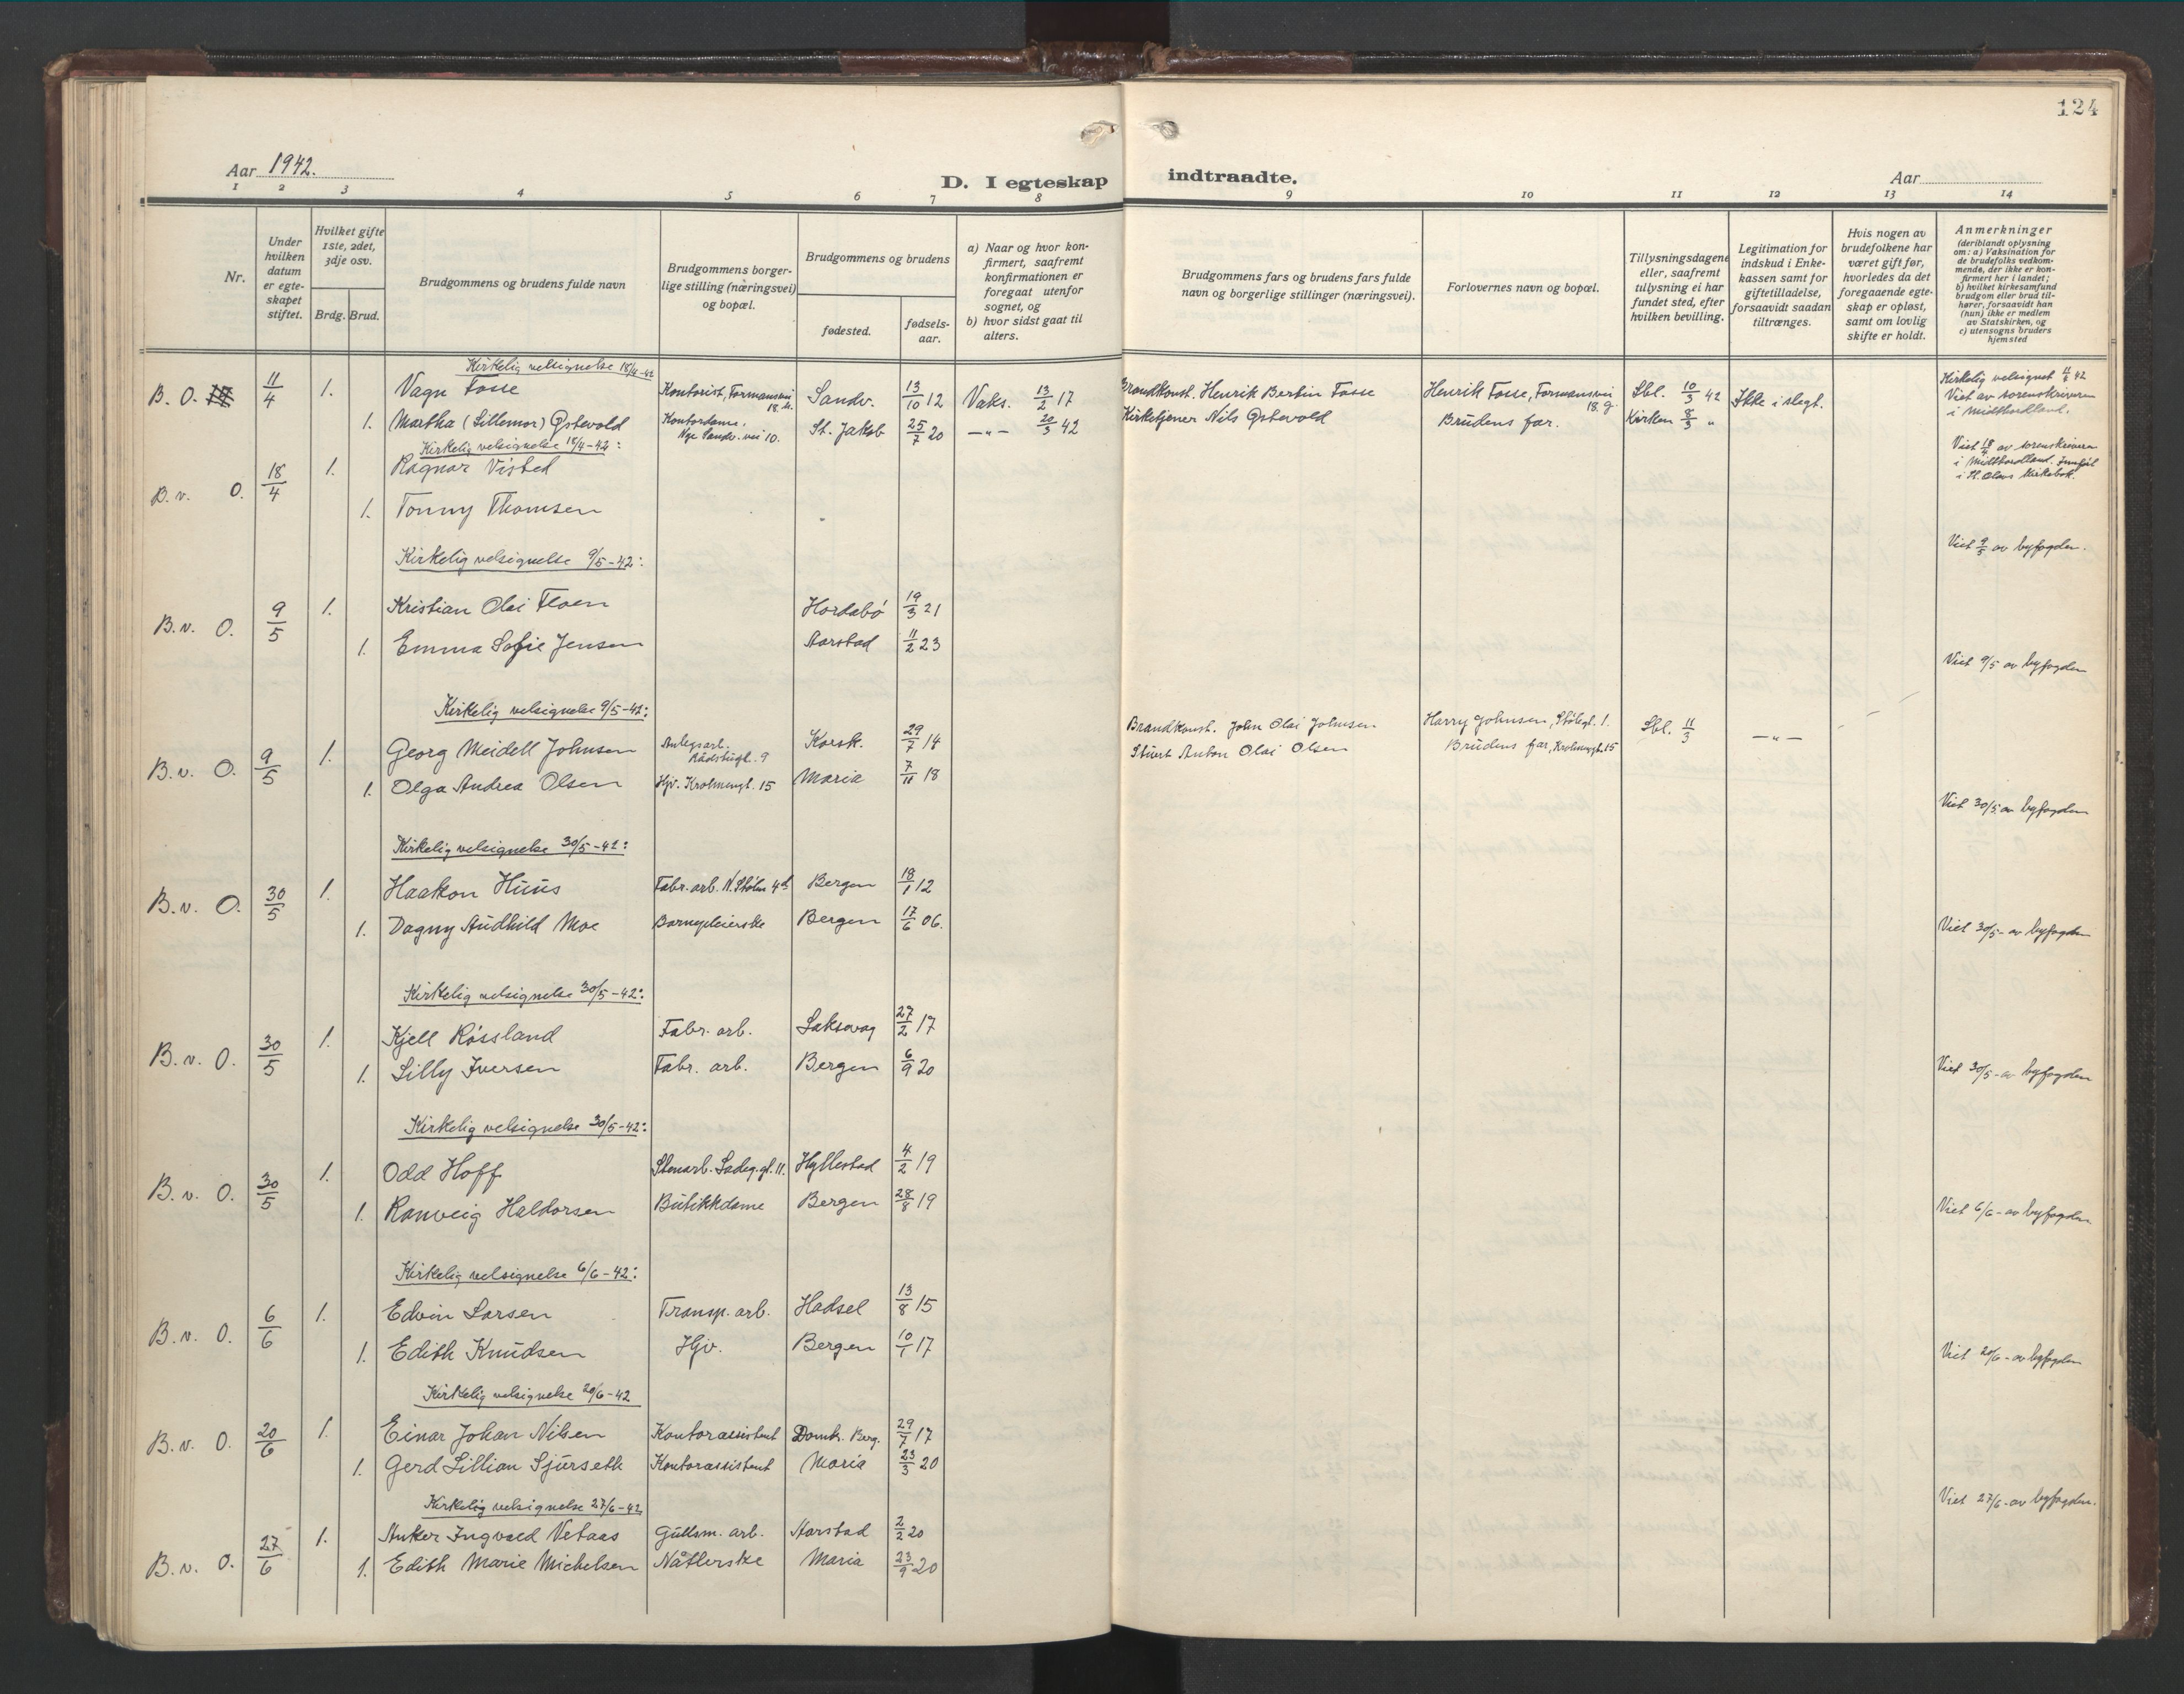 124
Aar 1942.
D. I egteskap indtraadte.
Aar
1 2 3 4 5 6 7 8 9 10 11 12 13 14
Nr.
Under hvilken datum er egteskapet stiftet.
Hvilket gifte 1ste, 2det, 3dje osv.
Brdg. Brud.
Brudgommens og brudens fulde navn
Brudgommens borgerlige stilling (næringsvei) og bopæl.
Brudgommens og brudens
fødested.
fødselsaar.
a) Naar og hvor konfirmert, saafremt konfirmationen er foregaat utenfor sognet, og
b) hvor sidst gaat til alters.
Brudgommens fars og brudens fars fulde navn og borgerlige stillinger (næringsvei).
Forlovernes navn og bopæl.
Tillysningsdagene eller, saafremt tillysning ei har fundet sted, efter hvilken bevilling.
Legitimation for indskud i Enkekassen samt for giftetilladelse, forsaavidt saadan tiltrænges.
Hvis nogen av brudefolkene har været gift før, hvorledes da det foregaaende egteskap er opløst, samt om lovlig skifte er holdt.
Anmerkninger
(deriblandt oplysning om: a) Vaksination for de brudefolks vedkommende, der ikke er konfirmert her i landet; b) hvilket kirkesamfund brudgom eller brud tilhører, forsaavidt han (hun) ikke er medlem av Statskirken, og c) utensogns bruders hjemsted
Kirkelig velsignelse 18/4-42
B. O. 11/4 1. Vagn Fosse Kontorist, Formannsvei 18. Sandv. 13/10 12 Vaks. 13/2 17 Brandkonst. Henrik Bertin Fosse Henrik Fosse, Formannsvei 18. g Sbl. 10/3 42 Ikke i slegt.
Kirkelig velsignet 11/4 42
Viet av sorenskriveren
i Midthordland.
1. Martha (Lillemor) Østevold Kontordame, Nye Sandv. vei 10. St. Jakob 25/7 20 —"— 20/3 42 Kirketjener Nils Østevold Brudens far. Kirken 8/3 "
Kirkelig velsignelse 18/4-42:
B. v. O. 18/4 1. Ragnar Visted
Viet 18/4 av sorenskriveren
i Midthordland. Innført
i St. Olavs kirkebok.
1. Tonny Thomsen
Kirkelig velsignelse 9/5-42:
Viet 9/5 av byfogden.
B. v. O. 9/5 1. Kristian Olai Floen Hordabö 19/3 21
1. Emma Sofie Jensen Aarstad 11/2 23
Viet 9/5 av byfogden
Kirkelig velsignelse 9/5-42:
B. v. O. 9/5 1. Georg Meidell Johnsen Anlegsarb. Rådstugt. 9 Korsk. 29/7 14 Brandkonst. John Olai Johnsen Harry Johnsen, Stølegt. 1. Sbl. 11/3 —"—
1. Olga Andrea Olsen Hjv. Krohnengt. 15 Maria 7/11 18 Stuert Anton Olai Olsen Brudens far, Krohnengt. 15
Viet 30/5 av byfogden
Kirkelig velsignelse 30/5-42:
B. v. O. 30/5 1. Haakon Huus Fabr. arb. N. Stølen 4b Bergen 18/1 12
1. Dagny Audhild Moe Barnepleierske Bergen 17/6 06.
Viet 30/5- av byfogden
Kirkelig velsignelse 30/5-42:
B. v. O. 30/5 1. Kjell Røssland Fabr. arb. Laksevag 27/2 17
1. Lilly Iversen Fabr. arb. Bergen 6/9 20
Viet 30/5- av byfogden
Kirkelig velsignelse 30/5-42:
B. v. O. 30/5 1. Odd Hoff Stenarb. Ladeg.gt. 11. Hyllestad 4/2 19
1. Ranveig Haldorsen Butikkdame Bergen 28/8 19
Viet 6/6- av byfogden
Kirkelig velsignelse 6/6-42:
B. v. O. 6/6 1. Edvin Larsen Transp. arb. Hadsel 13/8 15
1. Edith Knudsen Hjv. Bergen 10/1 17
Viet 20/6- av byfogden
Kirkelig velsignelse 20/6-42
B. v. O. 20/6 1. Einar Johan Nilsen Kontorassistent Domk. Berg. 29/7 17
1. Gerd Lillian Sjurseth Kontorassistent Maria 23/3 20
Kirkelig velsignelse 27/6-42
Viet 27/6- av byfogden.
B. v. O. 27/6 1. Anker Ingvald Vetaas Gullsm. arb. Aarstad 2/2 20
1. Edith Marie Michelsen Nåtlerske Maria 23/9 20